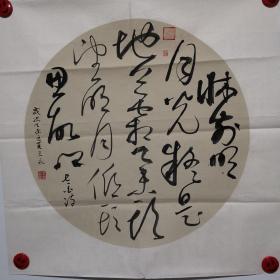 牀前明
月光疑是
地上霜舉頭
望明月低頭
思故鄉